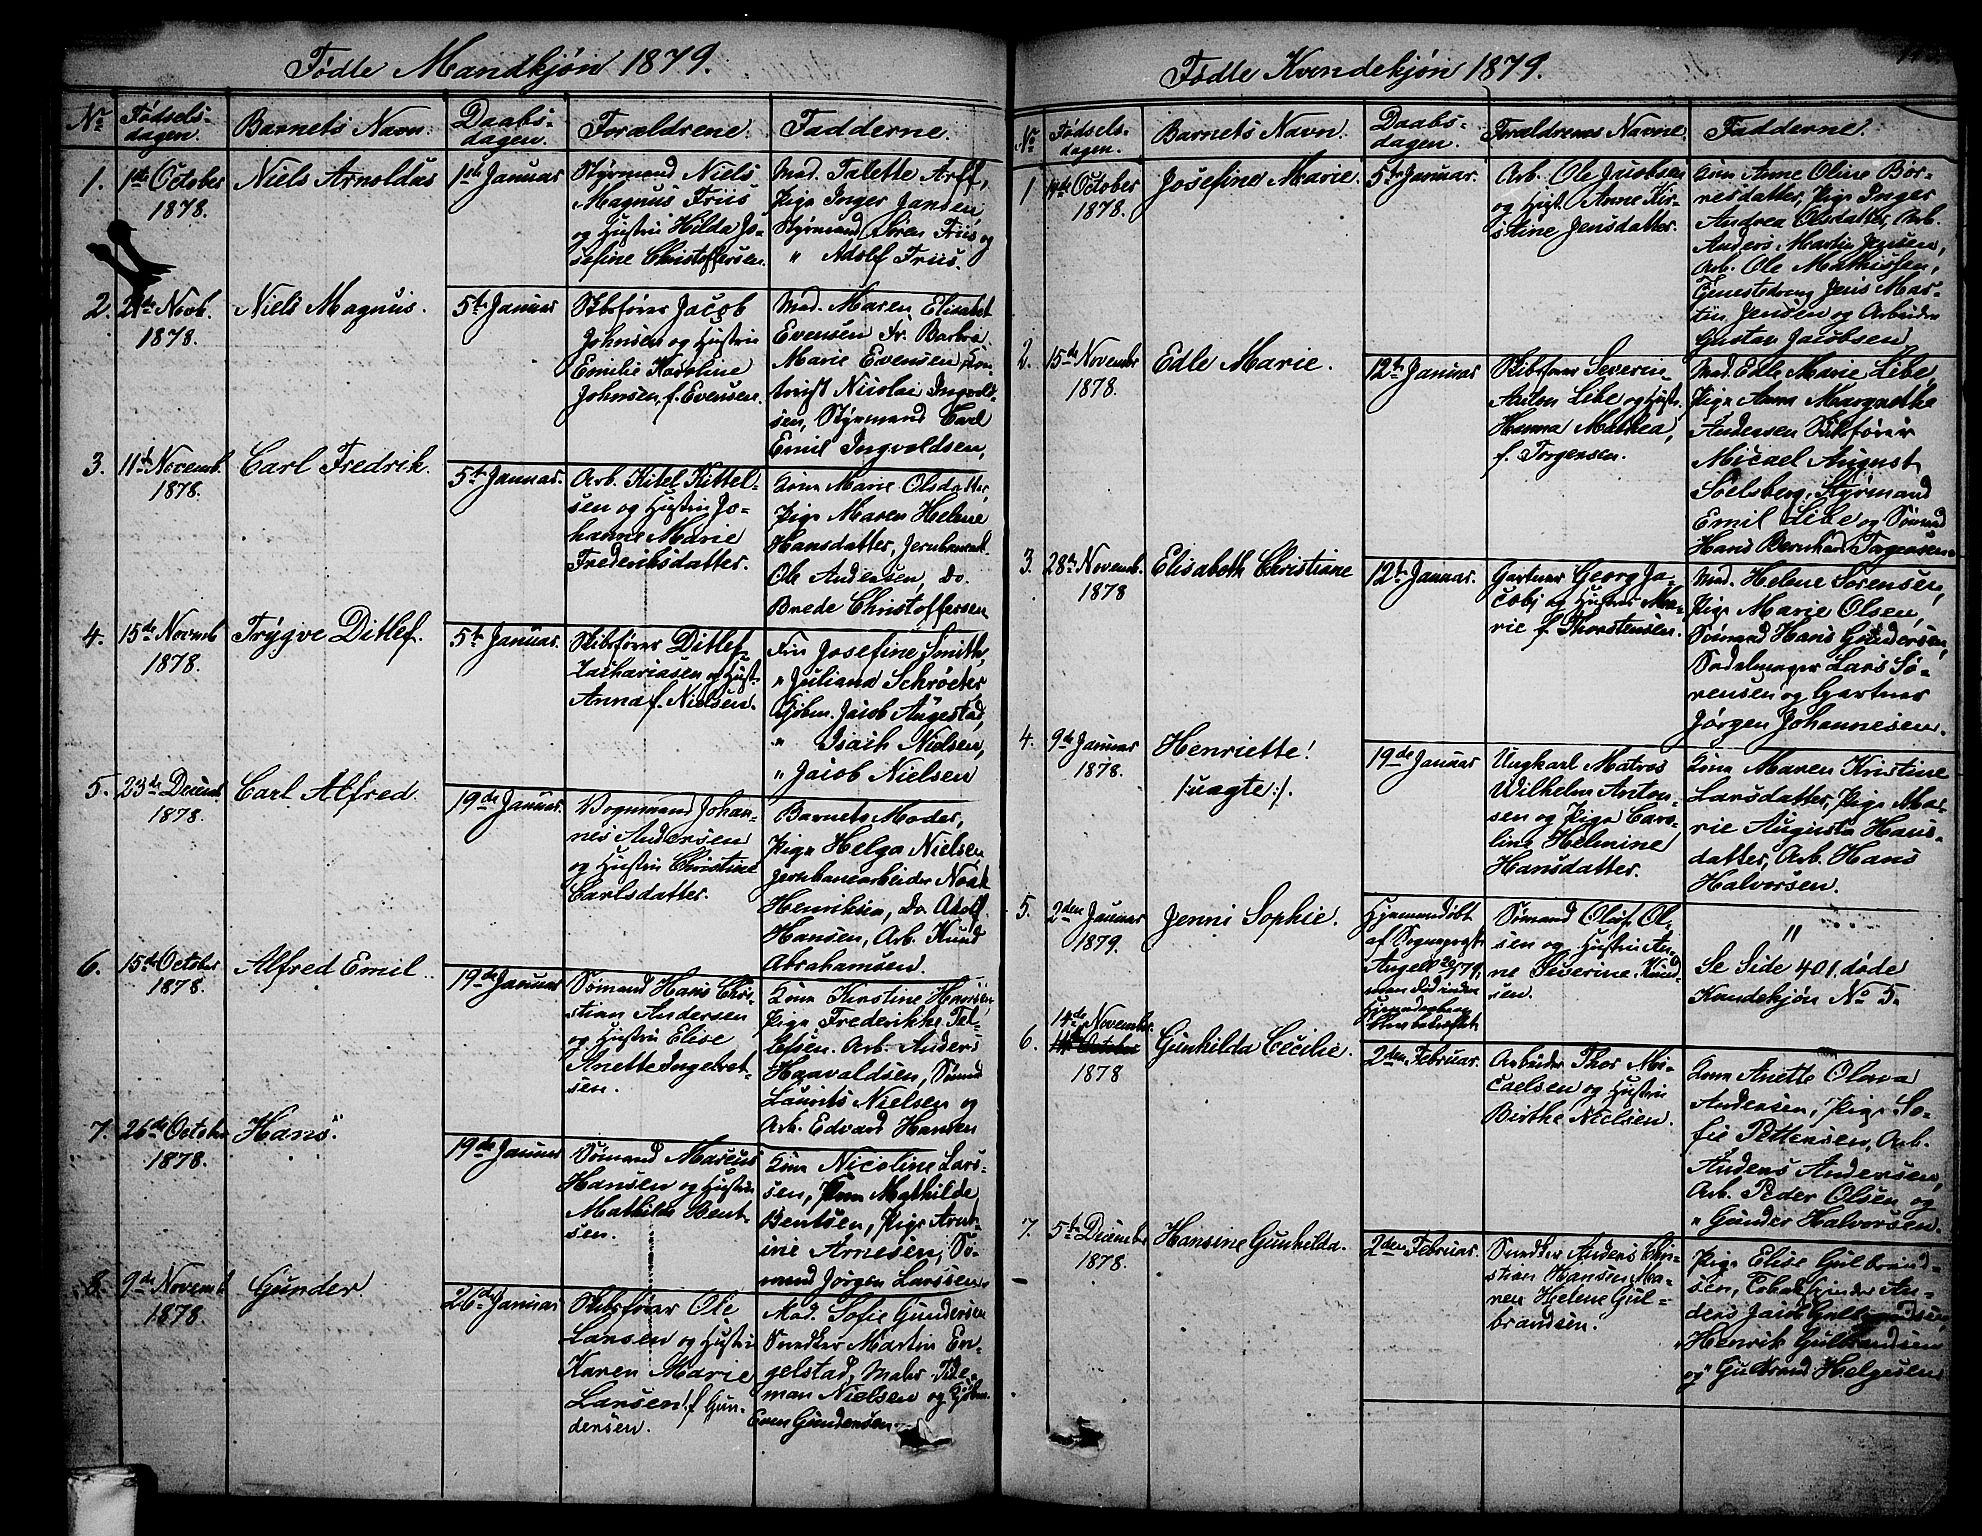 Födte Mandkjøn 1879.
No
Fødsels-
dagen.
Barnets Navn.
Daabs-
dagen.
Forældrene.
Fadderne.
1.
1ste October
1878.
Niels Arnoldus
1ste Januar
Styrmand Niels
Magnus Friis
og Hustru Hilda Jo-
sefine Christoffersen.
Mad. Talette Arff,
Pige Inger Jansen
Styrmand Sören Friis og
" Adolf Friis.
2.
21de Novb.
1878.
Niels Magnus.
5te Januar
Skibsfører Jacob
Johnsen og Hustru
Emilie Karoline
Johnsen, f. Evensen.
Mad. Maren Elisabet
Evensen Fr. Barbra
Marie Evensen
Nicolai Ingvold-
sen, Styrmand Carl
Emil Ingvoldsen,
3.
11te Novemb.
1878.
Carl Fredrik.
5te Januar.
Arb. Kitel Kittel-
sen og Hustru Jo-
hanne Marie
Frederiksdatter.
Kone Marie Olsdatter,
Pige Maren Helene
Hansdatter,
Ole Andersen, do.
Brede Christoffersen
4.
15de Novemb
1878.
Trygve Ditlef.
5te Januar.
Skibsfører Ditlef
Zachariasen og Hust.
Anna f. Nielsen.
Fru Josefine Smith,
" Juliana Schrøeter
Kjøbm. Jacob Augestad,
" Isach Nielsen,
" Jacob Nielsen
5.
23de Decemb.
1878.
Carl Alfred.
19de Januar.
Vognmand Johan-
nes Andersen
og Hustru Christine
Carlsdatter.
Barnets Moder,
Pige Helga Nielsen
Jernbanearbeider Noak
Henriksen, Do. Adolf
Hansen, Arb. Knud
Abrahamsen.
6.
15de October
1878.
Alfred Emil.
19de Januar
Sømand Hans Chri-
stian Andersen
og Hustru Elise
Anette Ingebret-
sen.
Kone Kirstine Hansen
Pige Frederikke Tel-
lefsen. Arb. Anders
Haavaldsen, Sømd
Laurits Nielsen og
Arb. Edvard Hansen
7.
26de October
1878.
Hans.
19de Januar
Sømand Marcus
Hansen og Hustru
Mathilde Bent-
sen.
Kone Nicoline Lars-
sen, Kone Mathilde
Bentsen, Pige Arnt-
ine Arnesen, Sø-
mand Jørgen Larssen.
8.
9de Novemb
1878.
Gunder.
26de Januar
Skibsfører Ole
Larsen og Hustru
Karen Marie
Larsen f. Gun-
dersen.
Mad. Sofie Gundersen
Snedker Martin En-
gelstad, Maler Tide-
man Nielsen og Kjøbm.
Even Gundersen.
Födte Kvindekjøn 1879.
No
Fødsels-
dagen.
Barnets Navn.
Daabs-
dagen.
Forældrenes Navne.
Fadderne.
1
14de October
1878.
Josefine Marie.
5te Januar.
Arb. Ole Jacobsen
og Hust. Anne Kir-
stine Jensdatter.
Kone Anne Oline Bør-
nesdatter, Pige Inger
Andrea Olsdatter, Arb.
Anders Martin Jensen,
Arb. Ole Mathissen,
Tjenestedreng Jens Mar-
tin Jensen og Arbeider
Gustav Jacobsen,
2.
15de Novembr
1878.
Edle Marie.
12te Januar
Skibsfører Severin
Anton Libe, og Hustr.
Hanna Mathea,
f. Torgensen.
Mad. Edle Marie Libe,
Pige Anna Margrethe
Andersen Skibsfører
Micael August
Soelsberg, Styrmand
Emil Libe og Sømand
Hans Bernhard Torgensen
3.
28de Novemb.
1878
Elisabeth Christiane
12te Januar.
Gartner Georg Ja-
cobj og Hustru Ma-
rie f. Thorstensen.
Mad. Helene Sørensen,
Pige Marie Olsen,
Sømand Hans Gundersen,
Sadelmager Lars Sø-
rensen og Gartner
Jørgen Johannesen.
4.
9de Januar
1878.
Henriette!
/:uægte:/.
19de Januar
Ungkarl Matros
Wilhelm Anton-
sen og Pige Caro-
line Helmine
Hansdatter.
Kone Maren Kristine
Larsdatter, Pige Ma-
rie Augusta Hans-
datter, Arb. Hans
Halvorsen.
5.
2den Januar
1879.
Jenni Sophie.
Hjemmedøbt
af Sogneprest
Angell 20/1 79,
men død inden
Hjemmedaaben
blev bekræftet
Sømand Oluf Ol-
sen og Hustru An-
ne Severine Knud-
sen.
"
Se Side 401. døde
Kvindekjøn No 5.
6.
14de November
14de October
1878
Gunhilda Cecilie.
2den Februar.
Arbeider Thor Mi-
caelsen og Hustru
Birthe Nielsen.
Kone Anette Olava
Andersen, Pige So-
fie Pettersen, Arb.
Anders Andersen,
Arb. Peder Olsen og
" Gunder Halvorsen.
7.
5te Decembr
1878.
Hansine Gunhilda.
2den Februar.
Snedker Anders Chri-
stian Hansen Ma-
ren Helene Gul-
brandsen.
Pige Elise Gulbrand-
sen, Tobakspinder An-
ders Jacob Gulbrandsen,
Henrik Gulbrandsen
og " Gulbrand Helgesen